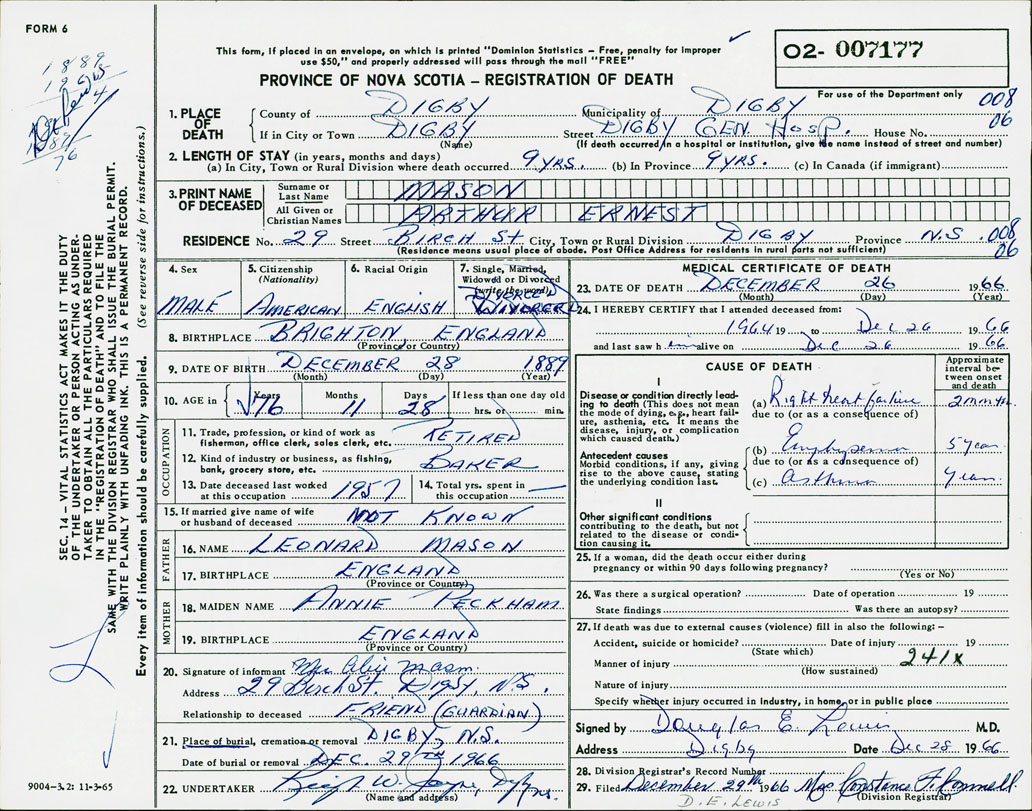 FORM 6
1889
This form, if placed in an envelope, on which is printed "Dominion Statistics – Free, penalty for improper
use $50," and properly addressed will pass through the mail "FREE"
PROVINCE OF NOVA SCOTIA – REGISTRATION OF DEATH
02- 007177
For use of the Department only
008
06
1. PLACE OF DEATH
County of DIGBY Municipality of DIGBY
If in City or Town DIGBY Street DIGBY GEN. HOSP. House No.
(Name) (If death occurred in a hospital or institution, give the name instead of street and number)
2. LENGTH OF STAY (in years, months and days)
(a) In City, Town or Rural Division where death occurred 9 YRS. (b) In Province 9 YRS. (c) In Canada (if immigrant)
3. PRINT NAME OF DECEASED
Surname or Last Name MASON
All Given or Christian Names ARTHUR ERNEST
RESIDENCE No. 29 Street BIRCH St. City, Town or Rural Division DIGBY Province N.S. 008
(Residence means usual place of abode. Post Office Address for residents in rural parts not sufficient) 06
4. Sex
MALE
5. Citizenship
(Nationality)
AMERICAN
6. Racial Origin
ENGLISH
7. Single, Married,
Widowed or Divorced
(write the word)
DIVORCED
8. BIRTHPLACE BRIGHTON, ENGLAND
(Province or Country)
9. DATE OF BIRTH DECEMBER 28 1889
(Month) (Day) (Year)
10. AGE in Years 76 Months 11 Days 28 If less than one day old
hrs. or min.
OCCUPATION
11. Trade, profession, or kind of work as
fisherman, office clerk, sales clerk, etc. RETIRED
12. Kind of industry or business, as fishing,
bank, grocery store, etc. BAKER
13. Date deceased last worked
at this occupation 1957
14. Total yrs. spent in
this occupation —
15. If married give name of wife
or husband of deceased NOT KNOWN
FATHER
16. NAME LEONARD MASON
17. BIRTHPLACE ENGLAND
(Province or Country)
MOTHER
18. MAIDEN NAME ANNIE PECKHAM
19. BIRTHPLACE ENGLAND
20. Signature of informant Mrs Mason
Address 29 Birch St. Digby, N.S.
Relationship to deceased FRIEND (GUARDIAN)
21. Place of burial, cremation or removal DIGBY, N.S.
Date of burial or removal DEC. 29TH 1966
22. UNDERTAKER W.
(Name and address)
MEDICAL CERTIFICATE OF DEATH
23. DATE OF DEATH DECEMBER 26 1966
(Month) (Day) (Year)
24. I HEREBY CERTIFY that I attended deceased from:
1964 19 to Dec 26 1966
and last saw h im alive on Dec 26 1966
CAUSE OF DEATH
Approximate
interval be-
tween onset
and death
I
Disease or condition directly lead-
ing to death (This does not mean
the mode of dying, e.g., heart fail-
ure, asthenia, etc. It means the
disease, injury, or complication
which caused death.)
(a) Right heart failure 2 mnths.
due to (or as a consequence of)
Antecedent causes
Morbid conditions, if any, giving
rise to the above cause, stating
the underlying condition last.
(b) Emphysema 5 years
due to (or as a consequence of)
(c) asthma years
II
Other significant conditions
contributing to the death, but not
related to the disease or condi-
tion causing it.
25. If a woman, did the death occur either during
pregnancy or within 90 days following pregnancy?
(Yes or No)
26. Was there a surgical operation? Date of operation 19
State findings Was there an autopsy?
27. If death was due to external causes (violence) fill in also the following: –
Accident, suicide or homicide? Date of injury 19
(State which)
Manner of injury 241x
(How sustained)
Nature of injury
Specify whether injury occurred in industry, in home, or in public place
Signed by Douglas E. Lewis M.D.
Address Digby Date Dec 28 1966
28. Division Registrar's Record Number
29. Filed December 29th 1966 Mrs Constance F.
(Division Registrar)
D. E. LEWIS
SEC. 14 – VITAL STATISTICS ACT MAKES IT THE DUTY
OF THE UNDERTAKER OR PERSON ACTING AS UNDER-
TAKER TO OBTAIN ALL THE PARTICULARS REQUIRED
IN THE "REGISTRATION OF DEATH" AND TO FILE THE
SAME WITH THE DIVISION REGISTRAR WHO SHALL ISSUE THE BURIAL PERMIT.
WRITE PLAINLY WITH UNFADING INK. THIS IS A PERMANENT RECORD.
Every item of information should be carefully supplied. (See reverse side for instructions.)
9004-3.2: 11-3-65